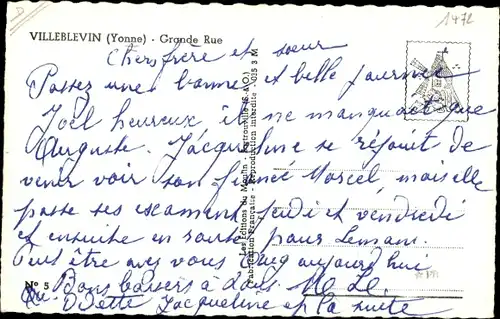 1472
VILLEBLEVIN (Yonne) - Grande Rue
Chers frère et soeur
Passez une bonne et belle journée
Joël heureux il ne manquait que
Auguste. Jacqueline se réjouit de
venir voir son fiancé Marcel, mais elle
passe ses examens jeudi et vendredi
et ensuite en route pour Lemans.
Peut être avez vous aujourd'hui
Bons baisers à tous
Odette Jacqueline et la suite
Nº 5
Les Editions du Moulin - Sartrouville (S.-&-O.)
Fabrication Française - Reproduction interdite - 025 3 M